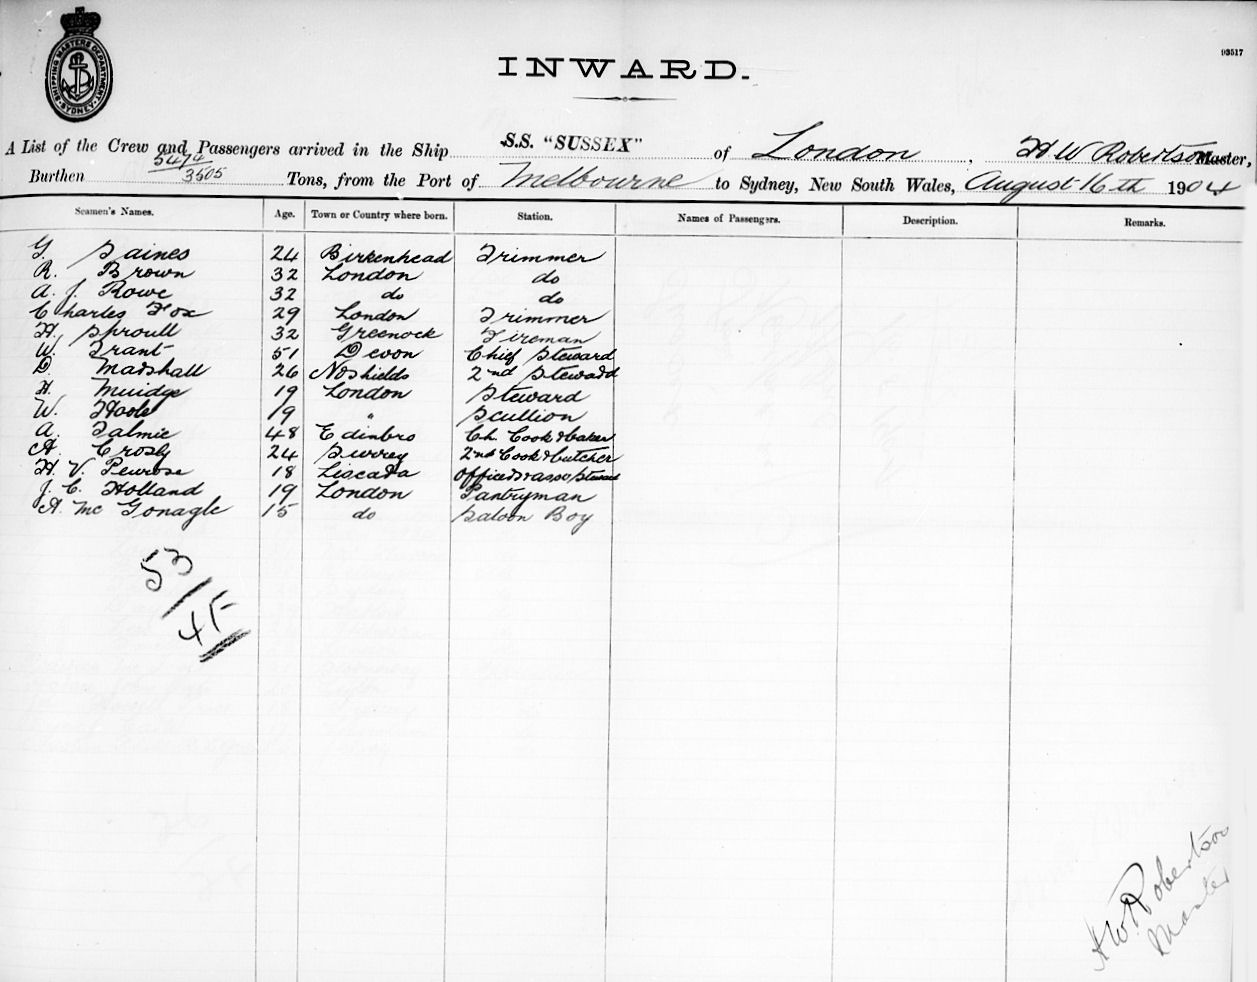 SHIPPING MASTERS DEPARTMENT
SYDNEY
93517
INWARD.
A List of the Crew and Passengers arrived in the Ship S.S. "SUSSEX" of London, H W Robertson Master,
Burthen 5474 / 3505 Tons, from the Port of Melbourne to Sydney, New South Wales, August 16th 1904
Seamen's Names. Age. Town or Country where born. Station. Names of Passengers. Description. Remarks.
G. Saines 24 Birkenhead Trimmer
R. Brown 32 London do
A. J. Rowe 32 do do
Charles Fox 29 London Trimmer
H. Sproull 32 Greenock Fireman
W. Trant 51 Devon Chief Steward
D. Marshall 26 No Shields 2nd Steward
H. Muidge 19 London Steward
W. 19 " Scullion
A. Talmie 48 Edinbro Ch. Cook & baker
A. Crosby 24 Surrey 2nd Cook & butcher
H. V. Penrose 18 Liscada Officers & asso Steward
J. C. Holland 19 London Pantryman
A. Mc Gonagle 15 do Saloon Boy
53
45
H W. Robertson
Master